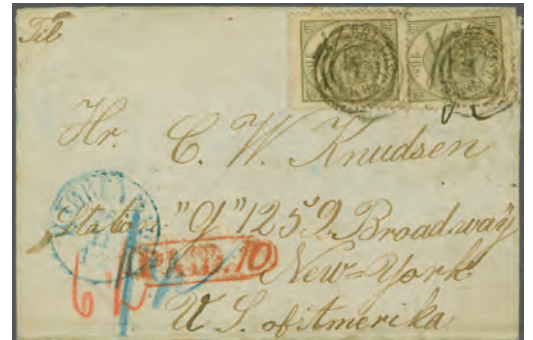 Til
Hr. C. W. Knudsen
Station "G" 1259. Broadway
PAID. 10
New-York
U S. of Amerika